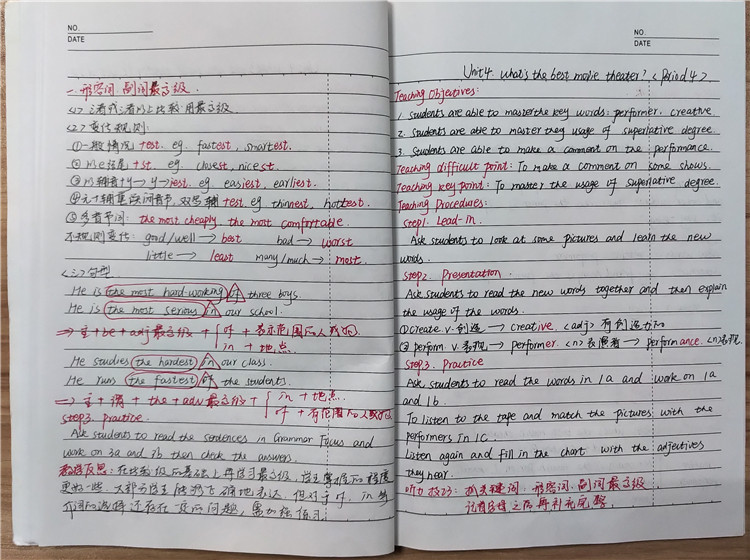 NO.
DATE
一.形容词 副词最高级.
<1> 三者或三者以上比较.用最高级
<2> 变化规则.
①一般情况 +est. eg. fastest, smartest.
②以e结尾 +st. eg. closest, nicest.
③以辅音+y → y→iest. eg. easiest, earliest.
test eg thinnest, hottest.
⑤多音节词: the most cheaply the most comfortable.
不规则变化: good/well → best bad → worst
little → least many/much → most.
<三>句型
He is the most hard-working of three boys.
He is the most serious in our school.
⇒ 主+be+adj最高级 + { of + 表示范围的人或物.
in + 地点.
He studies the hardest in our class.
He runs the fastest of the students.
⇒ 主+谓+the+adv最高级+ { in +地点.
of +有范围的人或物
Step3. practice.
Ask students to read the sentences in Grammar Focus and
work on 3a and 3b then check the answers.
教学反思: 在比较级的基础上再练习最高级. 学生掌握的程度
更好一些. 大部分学生能够正确地表达. 但对于of, in 等
介词的选择还存在一定的问题, 需加强练习.
NO.
DATE
Unit4 what's the best movie theater? <Period 4>
Teaching Objectives:
1. Students are able to master the key words: performer, creative.
2. Students are able to master they usage of superlative degree.
3. Students are able to make a comment on the performance.
Teaching difficult point: To make a comment on some shows.
Teaching key point: To master the usage of superlative degree.
Teaching Procedures:
Step1. Lead-In.
Ask students to look at some pictures and learn the new
words.
Step2. Presentation.
Ask students to read the new words together and then explain
the usage of the words.
①create. v. 创造 → creative. <adj> 有创造力的
② perform. v. 表现 → performer. <n> 表演者 → performance. <n>表现.
Step3. Practice
Ask students to read the words in 1a and work on 1a
and 1b.
To listen to the tape and match the pictures with the
performers In 1C.
Listen again and fill in the chart with the adjectives
they hear.
听力技巧: 抓关键词. 形容词. 副词最高级.
之后再补充完整.